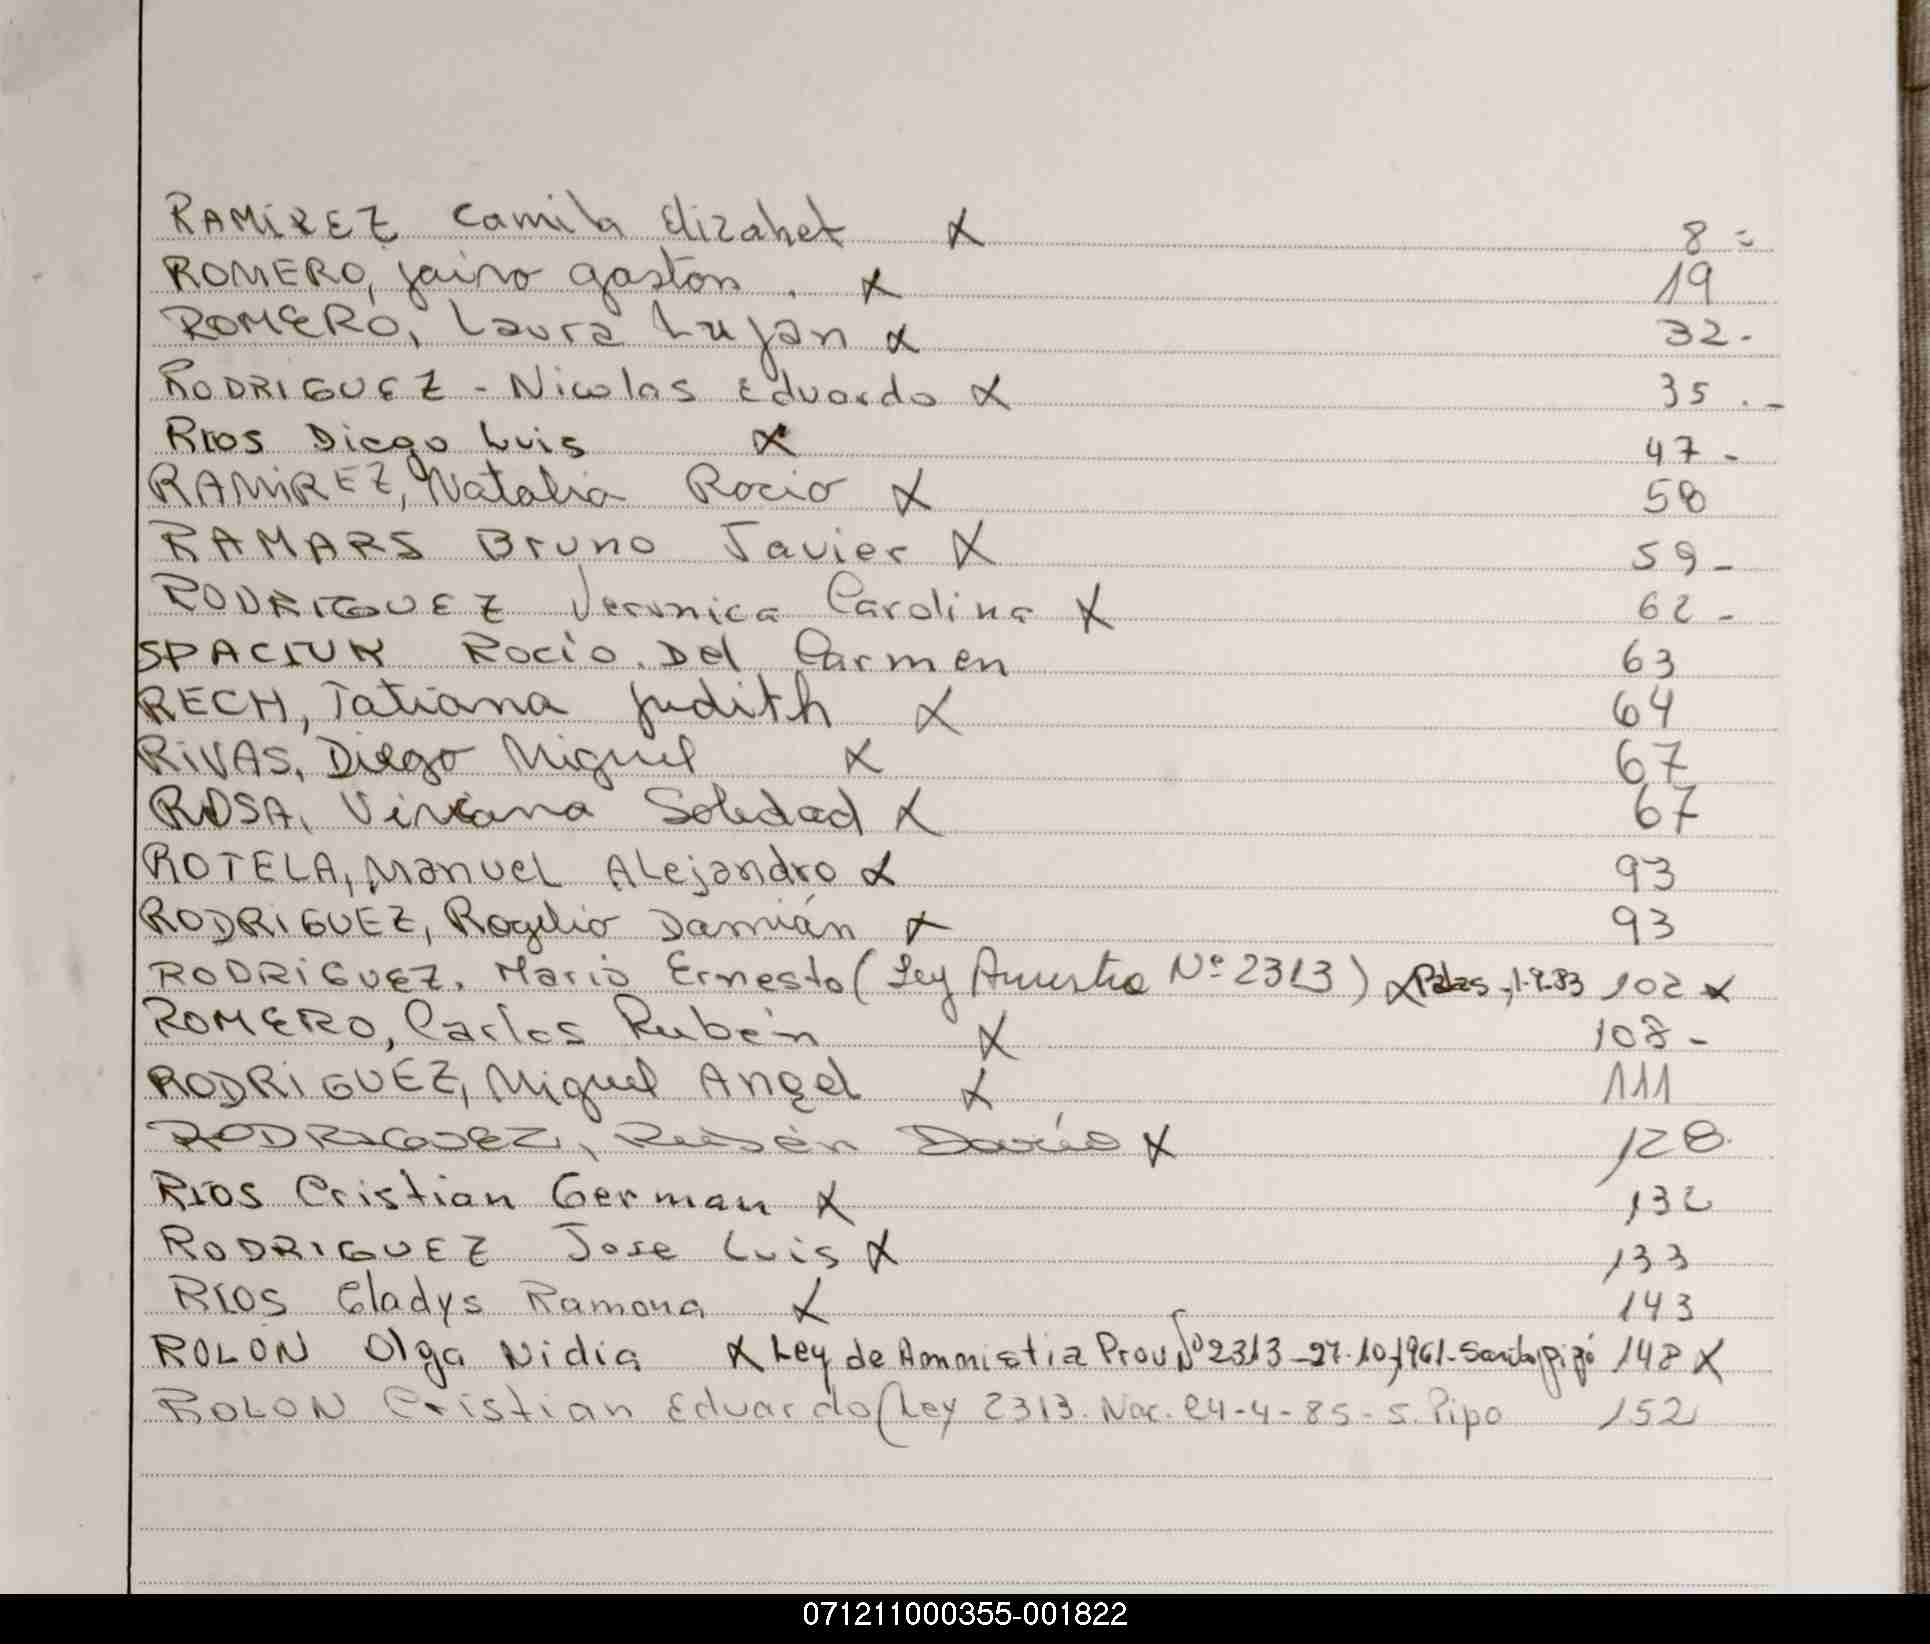 RAMÍREZ Camila Elizabet X 8 =
ROMERO, jairo gastón. X 19
ROMERO, Laura Luján X 32-
RODRIGUEZ - Nicolas Eduardo X 35.-
RIOS Diego Luis X 47-
RAMÍREZ, Natalia Rocio X 58
RAMARS Bruno Javier X 59-
RODRIGUEZ Veronica Carolina X 62-
SPACIUK Rocio. Del Carmen 63
RECH, Tatiana Judith X 64
RIVAS, Diego Miguel X 67
ROSA, Viviana Soledad X 67
ROTELA, Manuel Alejandro X 93
RODRIGUEZ, Rogelio Damián X 93
RODRIGUEZ, Mario Ernesto (Ley Amnistia Nº 2313) X 102 X
ROMERO, Carlos Rubén X 108-
RODRIGUEZ, Miguel Angel X 111
RODRIGUEZ, Rubén Darío X 128
RIOS Cristian German X 132
RODRIGUEZ Jose Luis X 133
RIOS Gladys Ramona X 143
ROLON Olga Nidia X Ley de Amnistia Prov Nº 2313-27.10.1961-Santo Pipó 148 X
ROLON Cristian Eduardo (Ley 2313. Nac. 24-4-85-S. Pipo 152
071211000355-001822